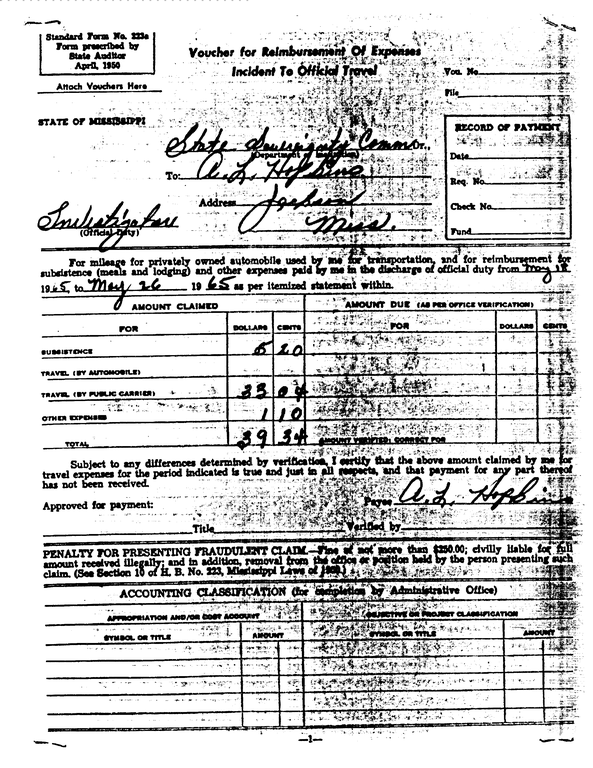 Standard Form No. 223a
Form prescribed by
State Auditor
April, 1950
Attach Vouchers Here
Voucher for Reimbursement Of Expenses
Incident To Official Travel
Vou. No.
File
STATE OF MISSISSIPPI
State Sovereignty Comm Dr.,
(Department or Institution)
To: A. L. Hopkins
Address Jackson
Miss.
Investigator
(Official Duty)
RECORD OF PAYMENT
Date
Req. No.
Check No.
Fund
For mileage for privately owned automobile used by me for transportation, and for reimbursement for
subsistence (meals and lodging) and other expenses paid by me in the discharge of official duty from May 18
1965, to May 26 1965 as per itemized statement within.
AMOUNT CLAIMED AMOUNT DUE (AS PER OFFICE VERIFICATION)
FOR DOLLARS CENTS FOR DOLLARS CENTS
SUBSISTENCE 5 20
TRAVEL (BY AUTOMOBILE)
TRAVEL (BY PUBLIC CARRIER) 33 04
OTHER EXPENSES 1 10
TOTAL 39 34 AMOUNT VERIFIED; CORRECT FOR
Subject to any differences determined by verification, I certify that the above amount claimed by me for
travel expenses for the period indicated is true and just in all respects, and that payment for any part thereof
has not been received.
Approved for payment: Payee A. L. Hopkins
Title Verified by
PENALTY FOR PRESENTING FRAUDULENT CLAIM.—Fine of not more than $250.00; civilly liable for full
amount received illegally; and in addition, removal from the office or position held by the person presenting such
claim. (See Section 10 of H. B. No. 223, Mississippi Laws of
ACCOUNTING CLASSIFICATION (for completion by Administrative Office)
APPROPRIATION AND/OR COST ACCOUNT OBJECTIVE OR PROJECT CLASSIFICATION
SYMBOL OR TITLE AMOUNT SYMBOL OR TITLE AMOUNT
—1—